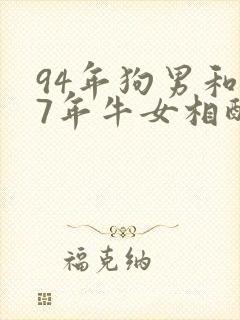 94年狗男和
7年牛女相
福克纳